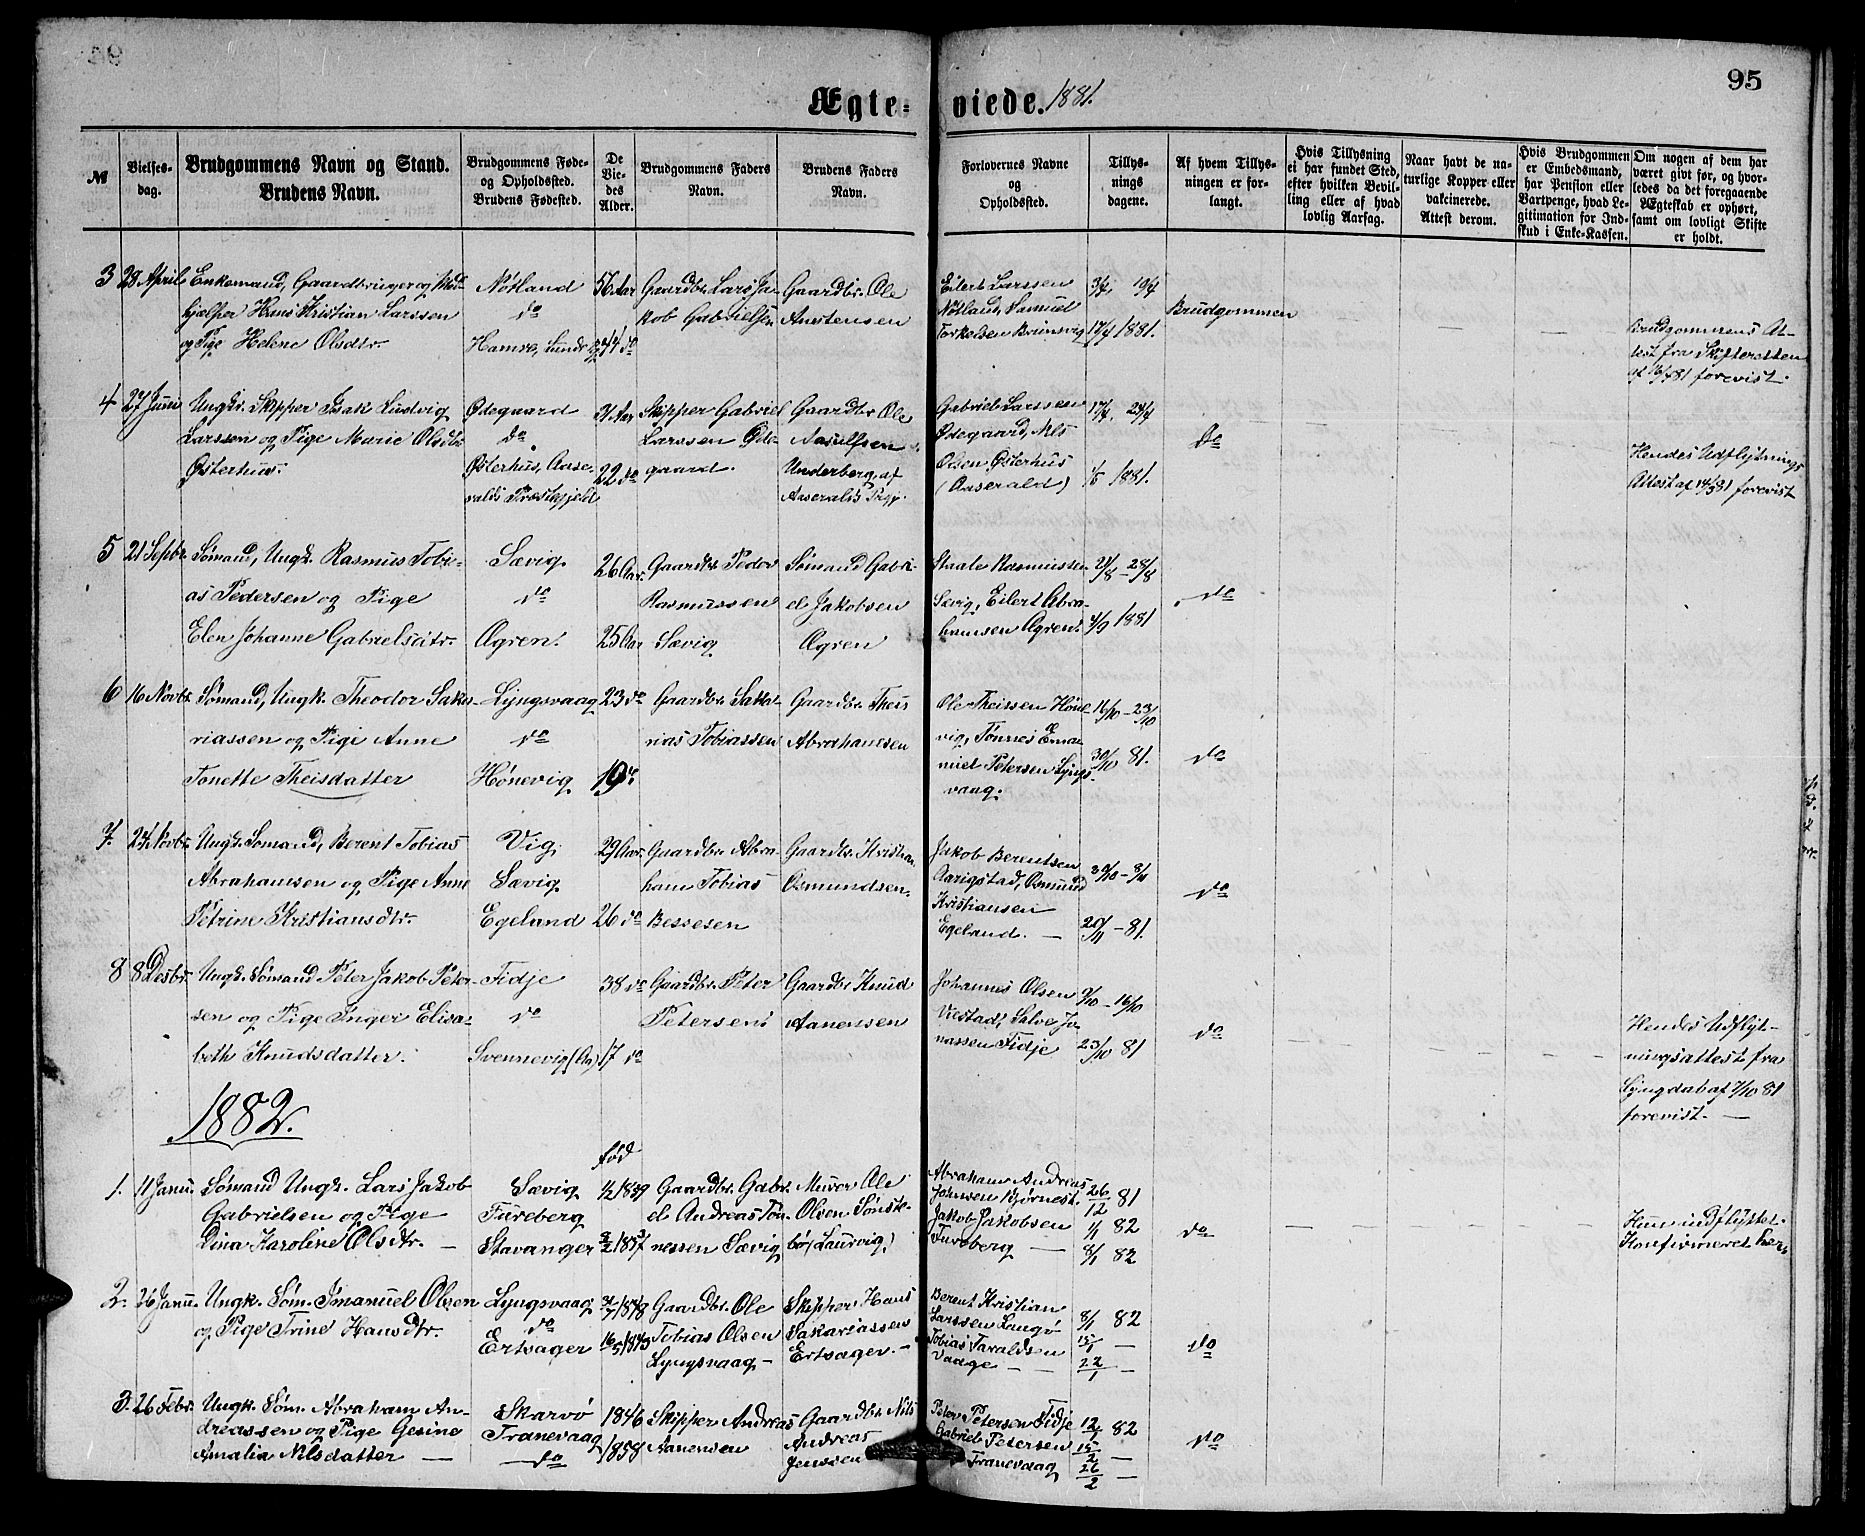 95
Ægte- viede. 1881.
№
Vielses-
dag.
Brudgommens Navn og Stand.
Brudens Navn.
Brudgommens Føde-
og Opholdssted.
Brudens Fødested.
De
Vie-
des
Alder.
Brudgommens Faders
Navn.
Brudens Faders
Navn.
Forlovernes Navne
og
Opholdssted.
Tillys-
nings
dagene.
Af hvem Tillys-
ningen er for-
langt.
Hvis Tillysning
ei har fundet Sted,
efter hvilken Bevil-
ling eller af hvad
lovlig Aarsag.
Naar havt de na-
turlige Kopper eller
vakcinerede.
Attest derom.
Hvis Brudgommen
er Embedsmand,
har Pension eller
Vartpenge, hvad Le-
gitimation for Ind-
skud i Enke-Kassen.
Om nogen af dem har
været givt før, og hvor-
ledes da det foregaaende
Ægteskab er ophørt,
samt om lovligt Skifte
er holdt.
3 28 April Enkemand, Gaardbruger og Med-
hjælper Hans Kristian Larssen
og Pige Helene Olsdtr.
Nøtland
do
Hamre,
56 Aar
44 do
Gaardbr. Lars Ja-
kob Gabrielsen
Gaardbr. Ole
Anstensen
Eilert Larssen
Nøtland, Samuel
Torkelsen Brinsvig
3/4 10/4
17/4 1881.
Brudgommen
Brudgommens At-
test fra Skifteretten
af forevist.
4 27 Juni Ungkr. Skipper Isak Ludvig
Larssen og Pige Marie Olsdtr.
Østerhus.
Ødegaard
do
Østerhus, Aase-
rals Præstegjeld
31 Aar
22 do
Skipper Gabriel
Larssen Øde-
gaard.
Gaardbr. Ole
Aasulfsen
Underberg, af
Aaserals Prgj.
Gabriel Larssen
Ødegaard, Nils
Olsen Østerhus
(Aaserald)
17/4. 24/4
1/5 1881.
do
Hendes Udflytnings
Attest af 14/5 81 forevist
5 21 Septbr. Sømand, Ungk. Rasmus Tobi-
as Pedersen og Pige
Elen Johanne Gabrielsdtr.
Sævig
do
Øgren.
26 Aar.
25 Aar
Gaardbr. Peder
Rasmussen
Sævig
Sømand Gabri-
el Jakobsen
Øgren
Staale Rasmussen
Sævig, Eilert Abra-
hamsen Øgren.
21/8 - 28/8
4/9 1881
do
6 16 Novbr. Sømand, Ungk. Theodor Saka-
riassen og Pige Anne
Tonette Theisdatter
Lyngsvaag
do
Hønevig
23 do
19 do
Gaardbr. Saka-
rias Tobiassen
Gaardbr. Theis
Abrahamsen
Ole Theissen Høne-
vig, Tønnes Ema-
nuel Petersen Lyngs-
vaag.
16/10 - 23/10
30/10 81.
do
7. 24 Novbr. Ungk. Sømand, Berent Tobias
Abrahamsen og Pige Anne
Petrine Kristiansdtr.
Vig
Sævig
Egeland
29 Aar.
26 do
Gaardbr. Abra-
ham Tobias
Bessesen
Gaardbr. Kristian
Osmundsen.
Jakob Berentsen
Aarigstad, Osmund
Kristiansen
Egeland. —
20/11 - 81.
do
8 8 Desbr. Ungk. Sømand Peter Jakob Peter-
sen og Pige Inger Elisa-
beth Knudsdatter.
Fidje
do
Svennevig (Aa)
38 do
17 do
Gaardbr. Peter
Petersen
Gaardbr. Knud
Aanensen
Johannes Olsen
Viestad, Salve Jo-
nassen Fidje
9/10 - 16/10
23/10 81
do
Hendes Udflyt-
ningsattest fra
Lyngdal af 7/10 81
forevist. —
1882.
1. 11 Janu. Sømand Ungk. Lars Jakob
Gabrielsen og Pige
Dina Karoline Olsdtr. —
Sævig
Tureberg
Stavanger
fød
Gaardbr. Gabri-
el Andreas Tøn-
nessen Sævig
Murer Ole
Olsen Sønste-
bø (Laurvig)
Abraham Andreas
Johnsen Bjørnest.
Jakob Jakobsen
Tureberg —
26/12 81
1/1 82
8/1 82
do
Hun indflyttet.
Konfirmeret her.
2. 26 Janu. Ungk. Søm. Imanuel Olsen
og Pige Trine Hansdtr.
Lyngsvaag
do
Ertsager
Gaardbr. Ole
Tobias Olsen
Lyngsvaag —
Skipper Hans
Sakariassen
Ertsager. —
Berent Kristian
Larssen Langø
Tobias Taraldsen
Vaage — —
8/1 82
15/1 —
22/1 —
do
3. 26 Febr. Ungk. Søm. Abraham An-
dreassen og Pige Gesine
Amalia Nilsdatter —
Skarvø
Tranevaag
do
1846
1858
Skipper Andreas
Aanensen
Gaardbr. Nils
Andreas
Jensen
Peter Petersen Fidje
Gabriel Petersen
Tranevaag
82
26/2 —
do